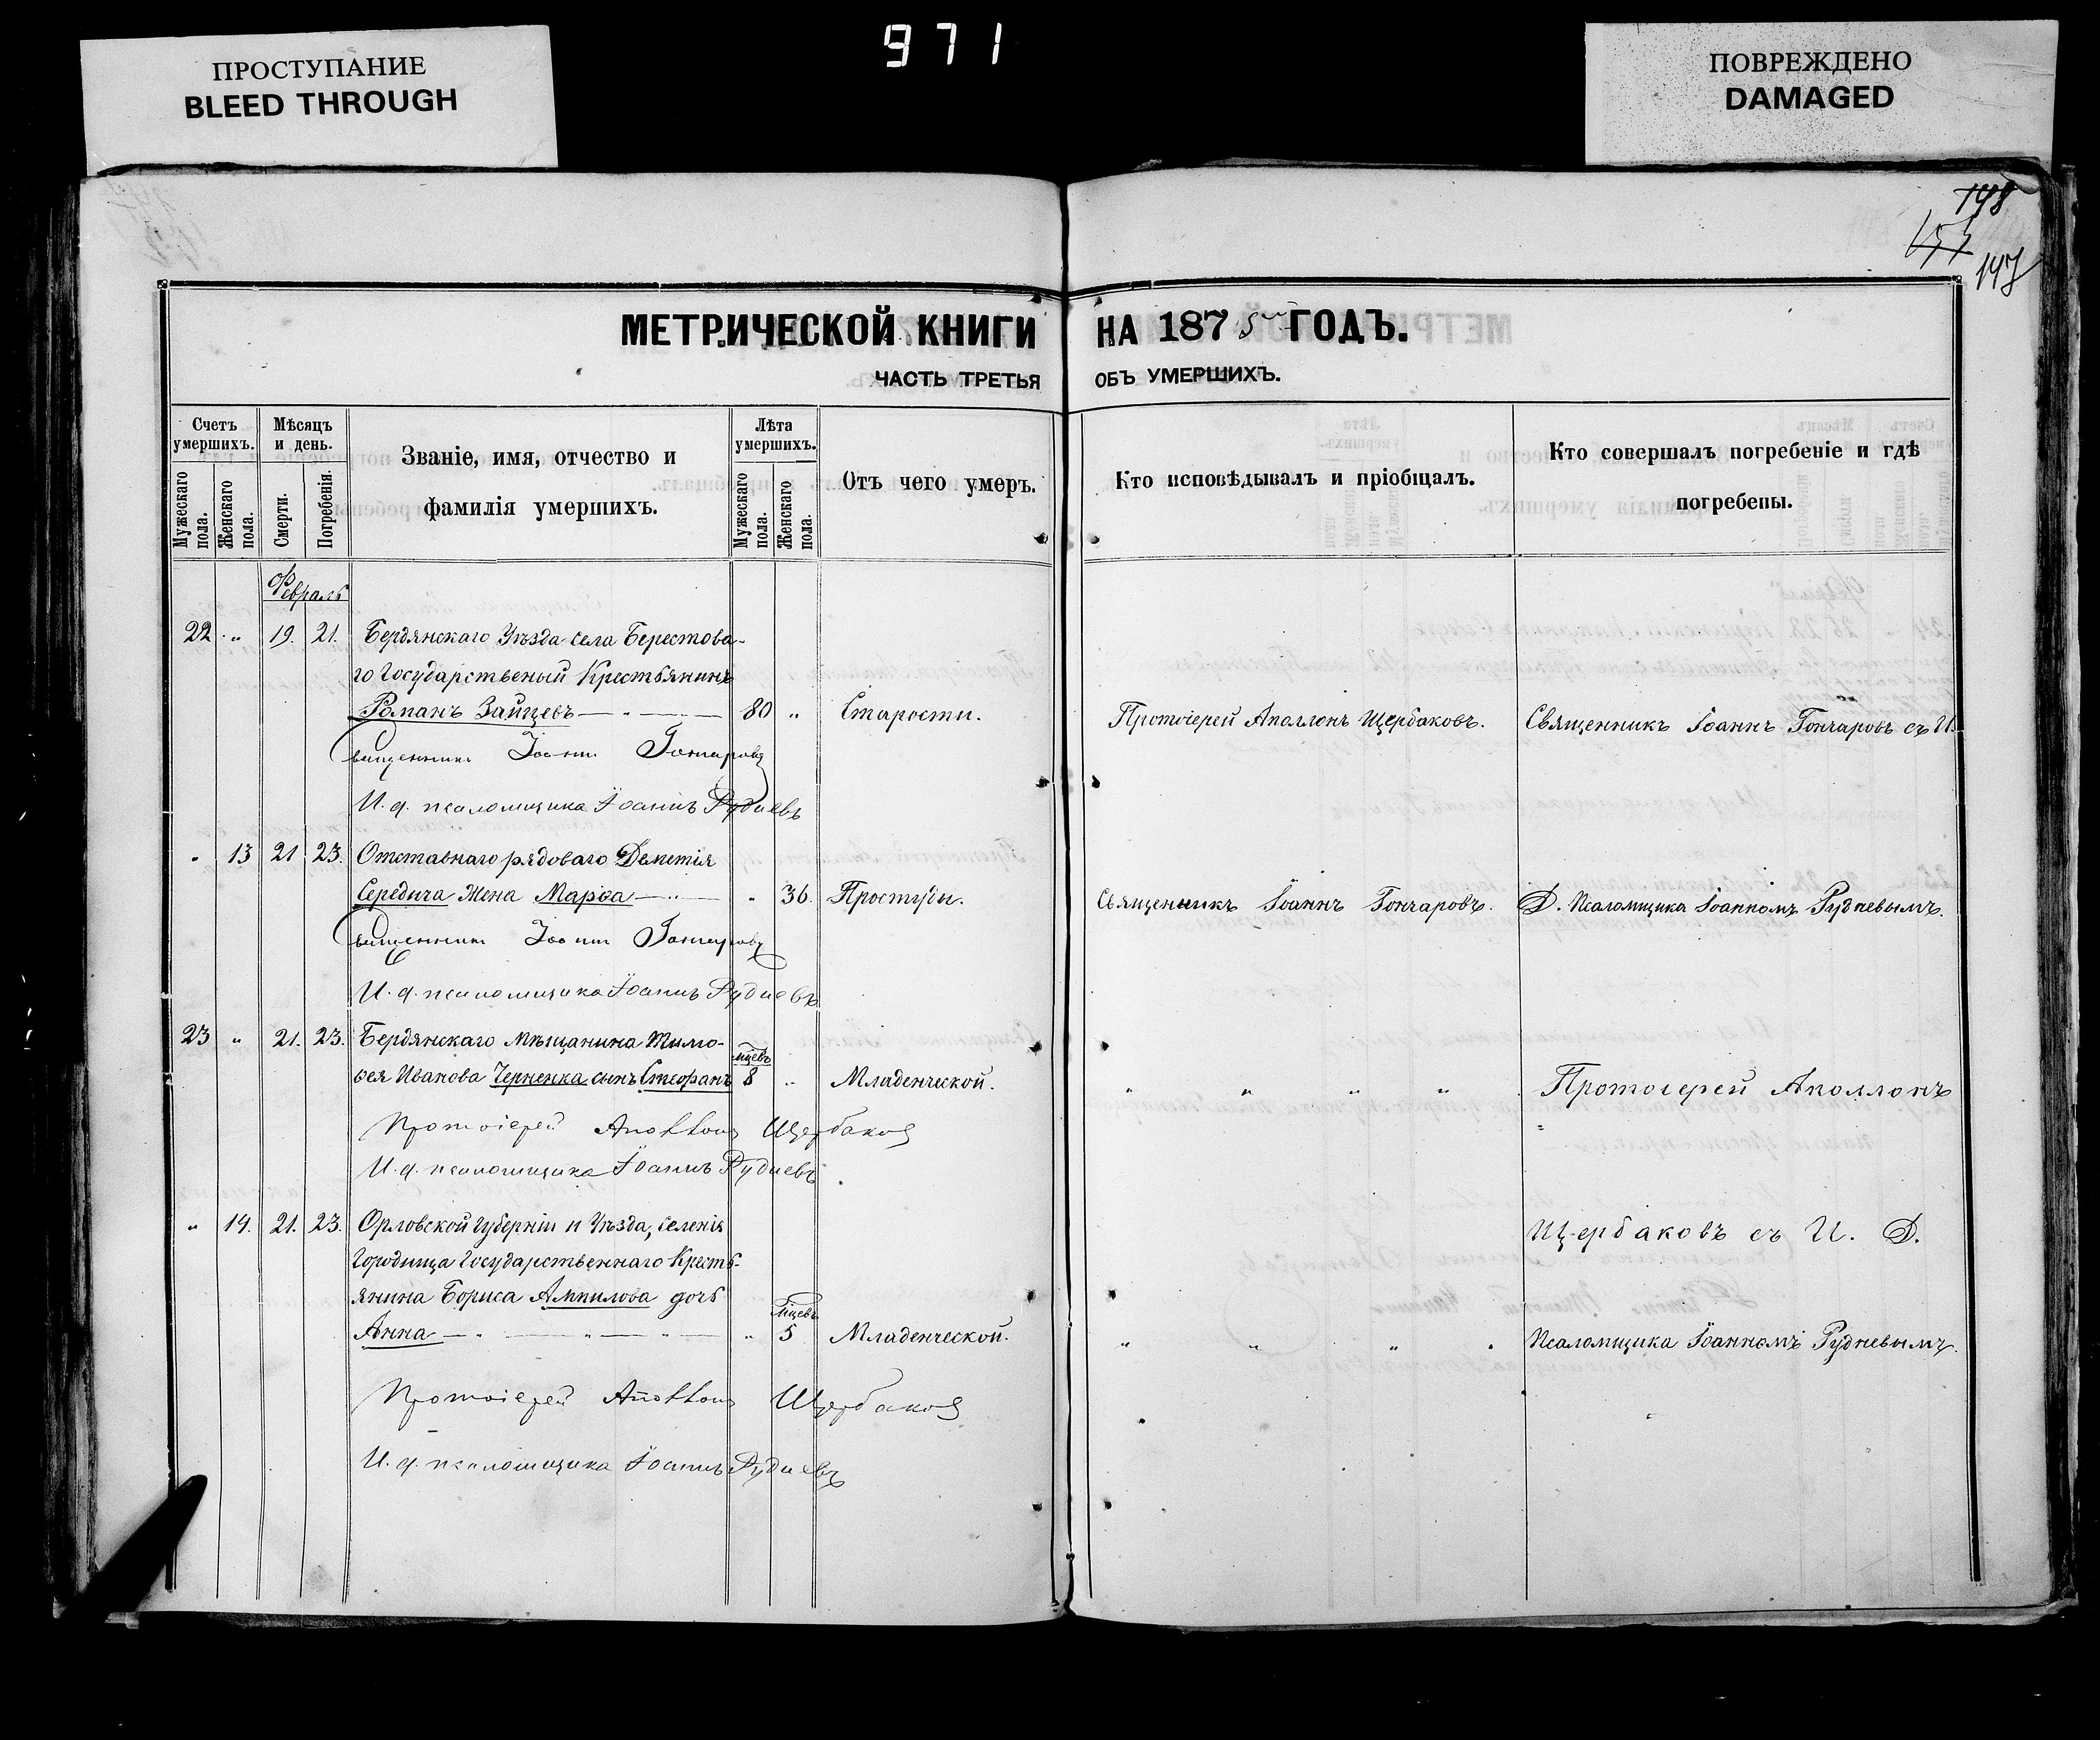 971
ПРОСТУПАНИЕ
BLEED THROUGH
ПОВРЕЖДЕНО
DAMAGED
148
147
МЕТРИЧЕСКОЙ КНИГИ НА 1875 ГОДЪ.
ЧАСТЬ ТРЕТЬЯ ОБЪ УМЕРШИХЪ.
Счетъ умершихъ.
Мужескаго пола.
Женскаго пола.
Мѣсяцъ и день.
Смерти.
Погребенія.
Званіе, имя, отчество и
фамилія умершихъ.
Лѣта умершихъ.
Мужескаго пола.
Женскаго пола.
Отъ чего умеръ.
Кто исповѣдывалъ и пріобщалъ.
Кто совершалъ погребеніе и гдѣ
погребены.
Февраль
22 " 19. 21. Бердянскаго Уѣзда села Берестова-
го Государственый Крестьянинъ
Романъ Зайцевъ — " — 80 " Старости. Протоіерей Аполлонъ Щербаковъ. Священникъ Іоаннъ Гончаровъ съ И.
Священникъ Іоаннъ Гончаровъ
И. д. псаломщика Іоаннъ Рудневъ
" 13 21 23. Отставнаго рядоваго Деметія
Середича Жена Марѳа — " — " 36. Простуды. Священникъ Іоаннъ Гончаровъ. Д. Псаломщика Іоанномъ Рудневымъ.
Священникъ Іоаннъ Гончаровъ
И. д. псаломщика Іоаннъ Рудневъ
23 " 21. 23. Бердянскаго Мѣщанина Тимо-
ѳея Иванова Черненка сынъ Стефанъ мцевъ 8 " Младенческой. " " " " Протоіерей Аполлонъ
Протоіерей Аполлонъ Щербаковъ
И. д. псаломщика Іоаннъ Рудневъ
" 14. 21. 23. Орловской Губерніи и Уѣзда, селенія Щербаковъ съ И. Д.
Городища Государственнаго Кресть-
янина Бориса Ампилова дочь
Анна — " — " — " — " мцевъ 5 Младенческой. " " " " Псаломщика Іоанномъ Рудневымъ.
Протоіерей Аполлонъ Щербаковъ
И. д. псаломщика Іоаннъ Рудневъ